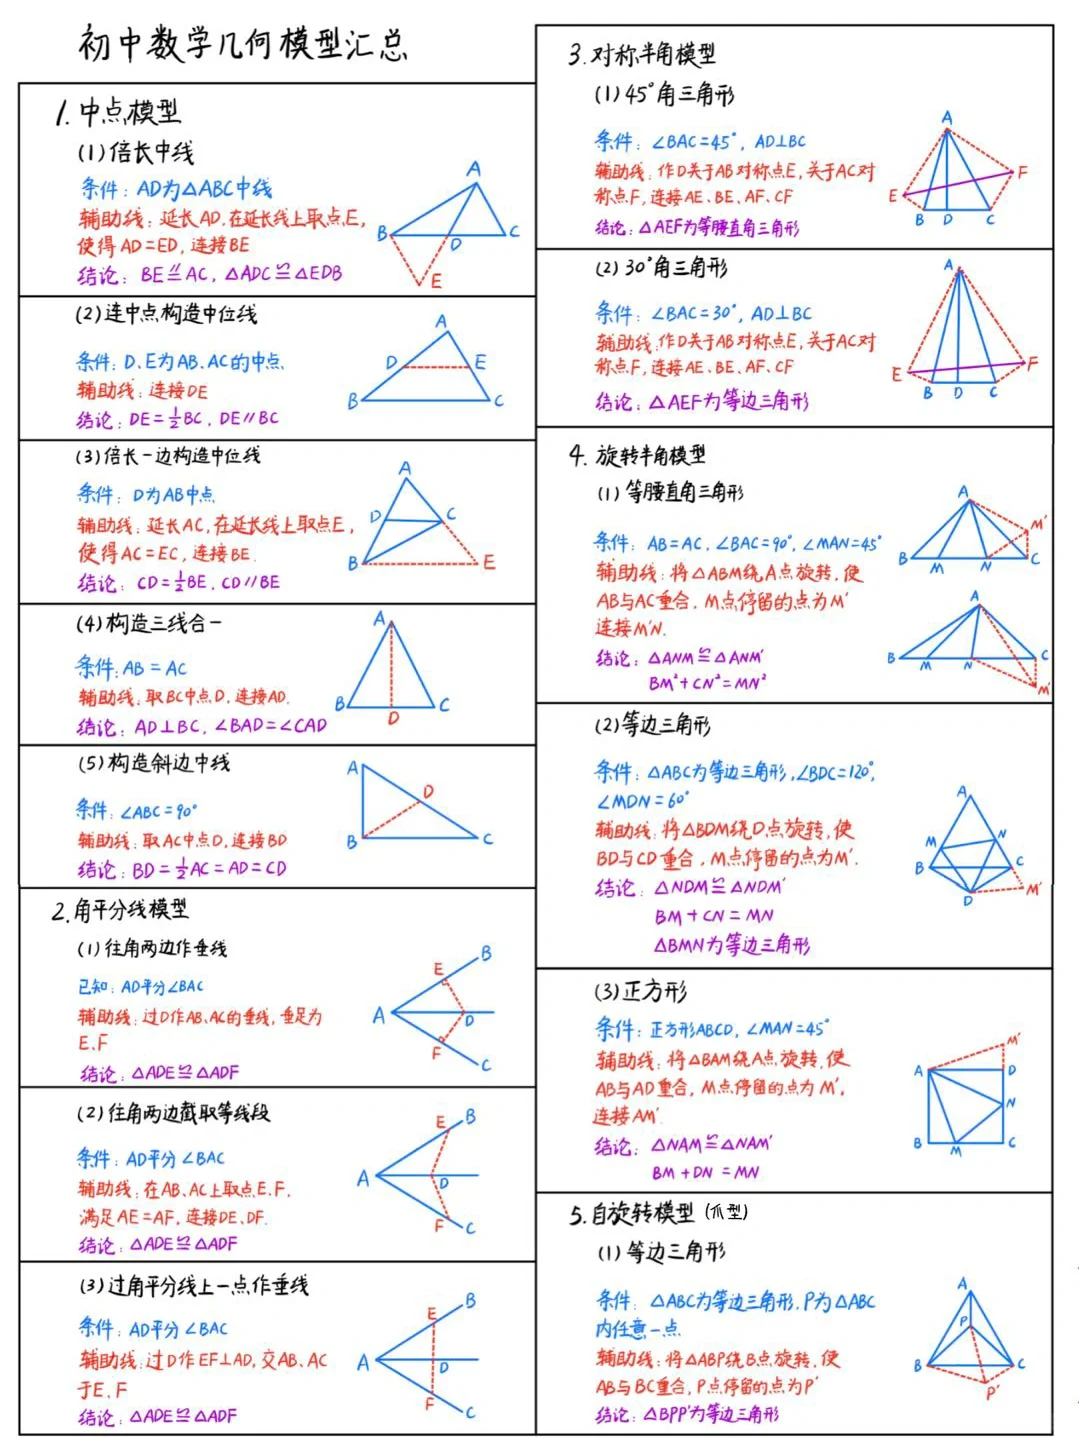 初中数学几何模型汇总
1.中点模型
(1)倍长中线
条件:AD为△ABC中线
辅助线:延长AD,在延长线上取点E,
使得AD=ED,连接BE
结论:BE⫽AC,△ADC≌△EDB
A
B
D
C
E
(2)连中点构造中位线
条件:D、E为AB、AC的中点
辅助线:连接DE
结论:DE=½BC,DE//BC
A
D
E
B
C
(3)倍长一边构造中位线
条件:D为AB中点
辅助线:延长AC,在延长线上取点E,
使得AC=EC,连接BE.
结论:CD=½BE,CD//BE
A
D
C
B
E
(4)构造三线合一
条件:AB=AC
辅助线:取BC中点D,连接AD.
结论:AD⊥BC,∠BAD=∠CAD
A
B
D
C
(5)构造斜边中线
条件:∠ABC=90°
辅助线:取AC中点D,连接BD
结论:BD=½AC=AD=CD
A
D
B
C
2.角平分线模型
(1)往角两边作垂线
已知:AD平分∠BAC
辅助线:过D作AB、AC的垂线,垂足为
E、F
结论:△ADE≌△ADF
B
E
A
D
F
C
(2)往角两边截取等线段
条件:AD平分∠BAC
辅助线:在AB、AC上取点E、F,
满足AE=AF,连接DE、DF.
结论:△ADE≌△ADF
B
E
A
D
F
C
(3)过角平分线上一点作垂线
条件:AD平分∠BAC
辅助线:过D作EF⊥AD,交AB、AC
于E、F
结论:△ADE≌△ADF
B
E
A
D
F
C
3.对称半角模型
(1)45°角三角形
条件:∠BAC=45°,AD⊥BC
辅助线:作D关于AB对称点E,关于AC对
称点F,连接AE、BE、AF、CF
结论:△AEF为等腰直角三角形
A
F
E
B
D
C
(2)30°角三角形
条件:∠BAC=30°,AD⊥BC
辅助线:作D关于AB对称点E,关于AC对
称点F,连接AE、BE、AF、CF
结论:△AEF为等边三角形
A
F
E
B
D
C
4.旋转半角模型
(1)等腰直角三角形
条件:AB=AC,∠BAC=90°,∠MAN=45°
辅助线:将△ABM绕A点旋转,使
AB与AC重合,M点停留的点为M′
连接M′N.
结论:△ANM≌△ANM′
BM²+CN²=MN²
A
M′
B
M
N
C
A
B
M
N
C
M′
(2)等边三角形
条件:△ABC为等边三角形,∠BDC=120°,
∠MDN=60°
辅助线:将△BDM绕D点旋转,使
BD与CD重合,M点停留的点为M′.
结论:△NDM≌△NDM′
BM+CN=MN
△BMN为等边三角形
A
M
N
B
C
D
M′
(3)正方形
条件:正方形ABCD,∠MAN=45°
辅助线:将△BAM绕A点旋转,使
AB与AD重合,M点停留的点为M′,
连接AM′
结论:△NAM≌△NAM′
BM+DN=MN
M′
A
D
N
B
M
C
5.自旋转模型(爪型)
(1)等边三角形
条件:△ABC为等边三角形,P为△ABC
内任意一点
辅助线:将△ABP绕B点旋转,使
AB与BC重合,P点停留的点为P′
结论:△BPP′为等边三角形
A
P
B
C
P′